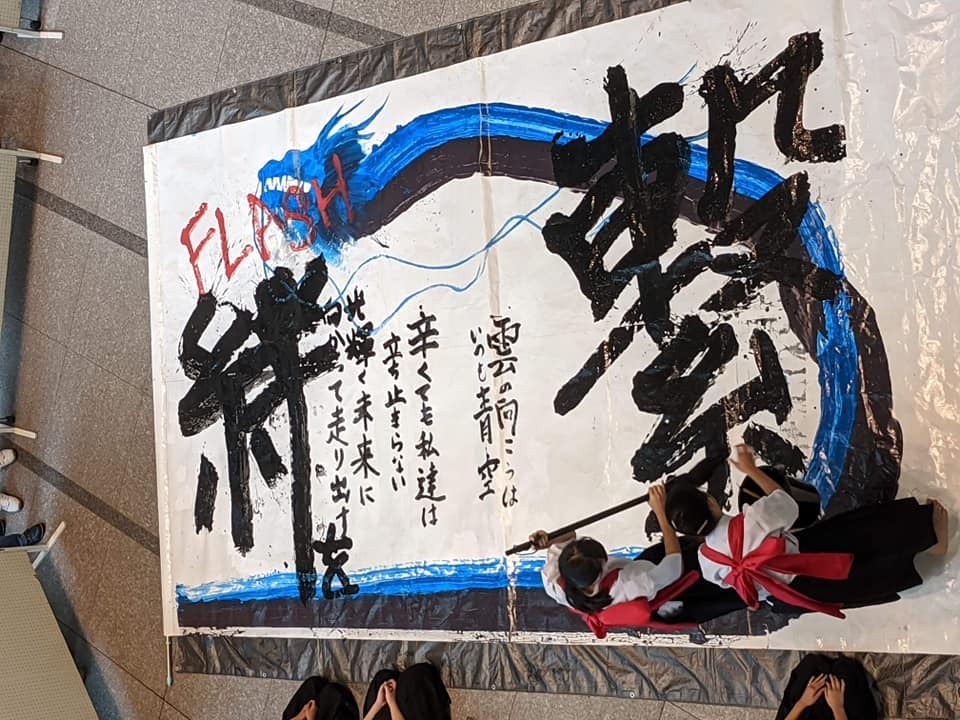 繋
雲の向こうは
いつも青空
辛くても私達は
立ち止まらない
光輝く未来に
向かって走り出す
絆
FLASH